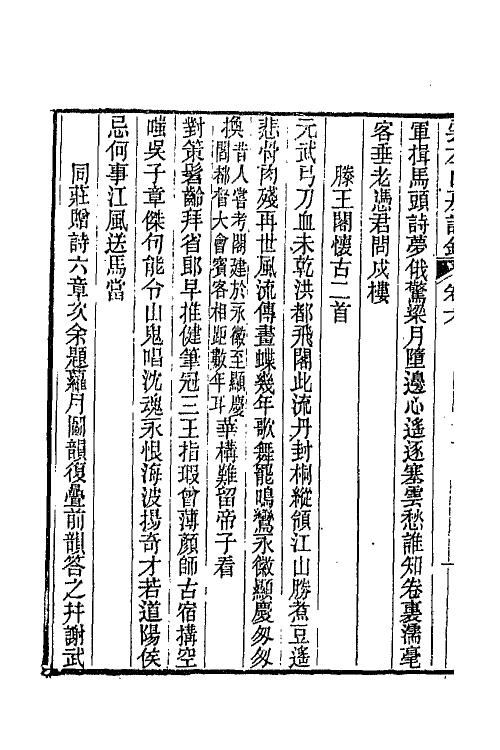 軍揖馬頭詩夢俄驚梁月墮邊心遙逐塞雲愁誰知卷裏濡毫
客垂老憑君問戍樓
滕王閣懷古二首
元武弓刀血未乾洪都飛閣此流丹封桐縱領江山勝煮豆遙
悲骨肉殘再世風流傳畫蝶幾年歌舞罷鳴鸞永徽顯慶匆匆
換昔人嘗考閣建於永徽至顯慶
閻都督大會賓客相距數年耳華構難留帝子看
對策髫齡拜省郎早推健筆冠三王指瑕曾薄顏師古宿搆空
嗤吳子章傑句能令山鬼唱沈魂永恨海波揚奇才若道陽侯
忌何事江風送馬當
同莊贈詩六章次余題蘿月關韻復疊前韻答之幷謝武